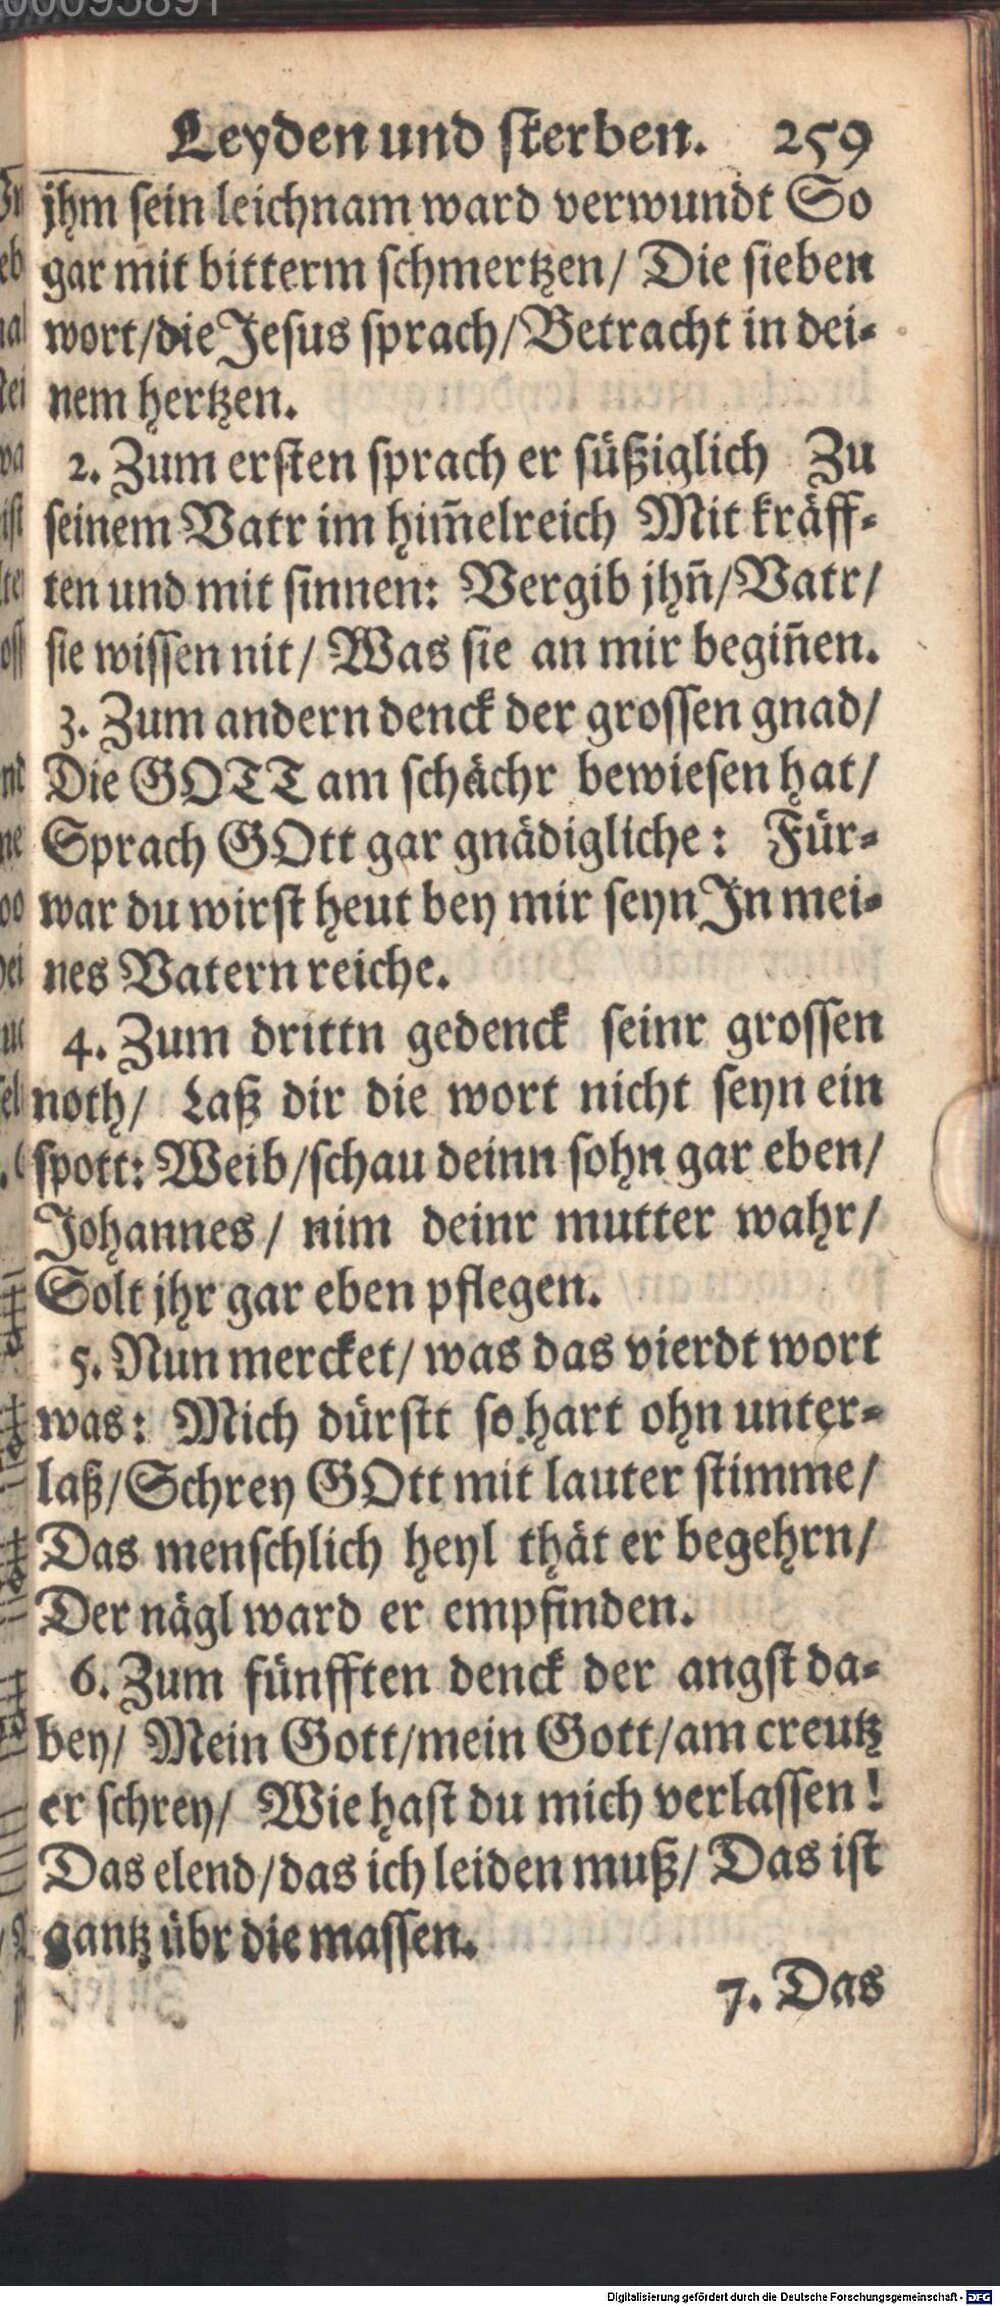 Leyden und sterben. 259
jhm sein leichnam ward verwundt So
gar mit bitterm schmertzen/ Die sieben
wort/die Jesus sprach/Betracht in dei-
nem hertzen.
2. Zum ersten sprach er süßiglich Zu
seinem Vatr im him̄elreich Mit kräff-
ten und mit sinnen: Vergib jhn̄/Vatr/
sie wissen nit/ Was sie an mir begin̄en.
3. Zum andern denck der grossen gnad/
Die GOTT am schächr bewiesen hat/
Sprach GOtt gar gnädigliche: Für-
war du wirst heut bey mir seyn In mei-
nes Vatern reiche.
4. Zum drittn gedenck seinr grossen
noth/ Laß dir die wort nicht seyn ein
spott: Weib/schau deinn sohn gar eben/
Johannes/ nim deinr mutter wahr/
Solt jhr gar eben pflegen.
5. Nun mercket/ was das vierdt wort
was: Mich dürstt so hart ohn unter-
laß/Schrey GOtt mit lauter stimme/
Das menschlich heyl thät er begehrn/
Der nägl ward er empfinden.
6. Zum fünfften denck der angst da-
bey/ Mein Gott/mein Gott/am creutz
er schrey/ Wie hast du mich verlassen!
Das elend/das ich leiden muß/ Das ist
gantz übr die massen.
7. Das
Digitalisierung gefördert durch die Deutsche Forschungsgemeinschaft - DFG